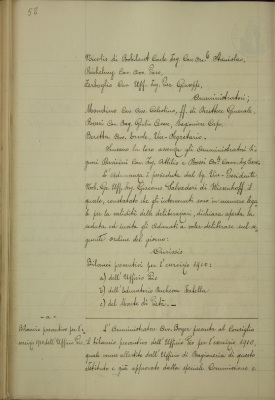 58
Nicolis di Robilant Conte Ing. Cav. Stanislao,
Rembelug Cav. Avv. Piero,
Cav. Uff. Ing. Giuseppe,
Amministratori;
Cav. Avv. Celestino, ff. di Direttore Generale,
Rossi Cav. Rag. Giulio Cesare, Ragioniere Capo,
Avv. Vice-Segretario.
la loro assenza gli Amministratori Si-
gnori Cav. Ing. Attilio e Rossi
L'Adunanza è presieduta dal Sig. Vice-Presidente
Nob. Ing. Uff. Ing. Giacomo Salvadori di Wiesenhoff il
quale, constatato che gli intervenuti sono in numero lega-
le per la validità delle deliberazioni, dichiara aperta la
seduta ed invita gli Adunati a voler deliberare sul se-
guente ordine del giorno:
Omissis
Bilanci preventivi per l'esercizio 1910:
a) dell'Ufficio Pio
b) dell'Educatorio Duchessa Isabella
c) del Monte di Pietà.
- a -
Bilancio preventivo per l'e-
sercizio 1910 dell'Ufficio Pio
L'Amministratore Cav. presenta al Consiglio
il bilancio preventivo dell'Ufficio Pio per l'esercizio 1910,
quale venne allestito dall'Ufficio di Ragioneria di questo
Istituto e già approvato dalla speciale Commissione e